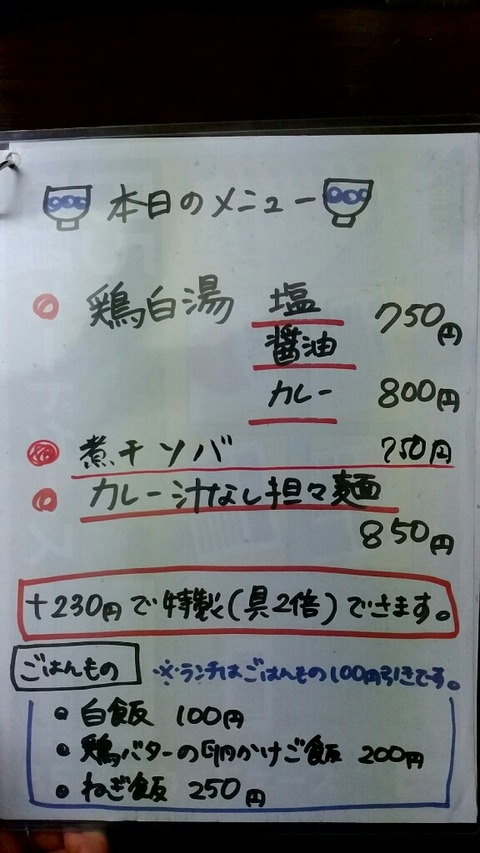 本日のメニュー
鶏白湯 塩 750円
醤油
カレー 800円
煮干ソバ 750円
カレー汁なし担々麺
850円
+230円で特製(具2倍)できます。
ごはんもの ※ランチはごはんもの100円引きです。
白飯 100円
鶏バターの卵かけご飯 200円
ねぎ飯 250円